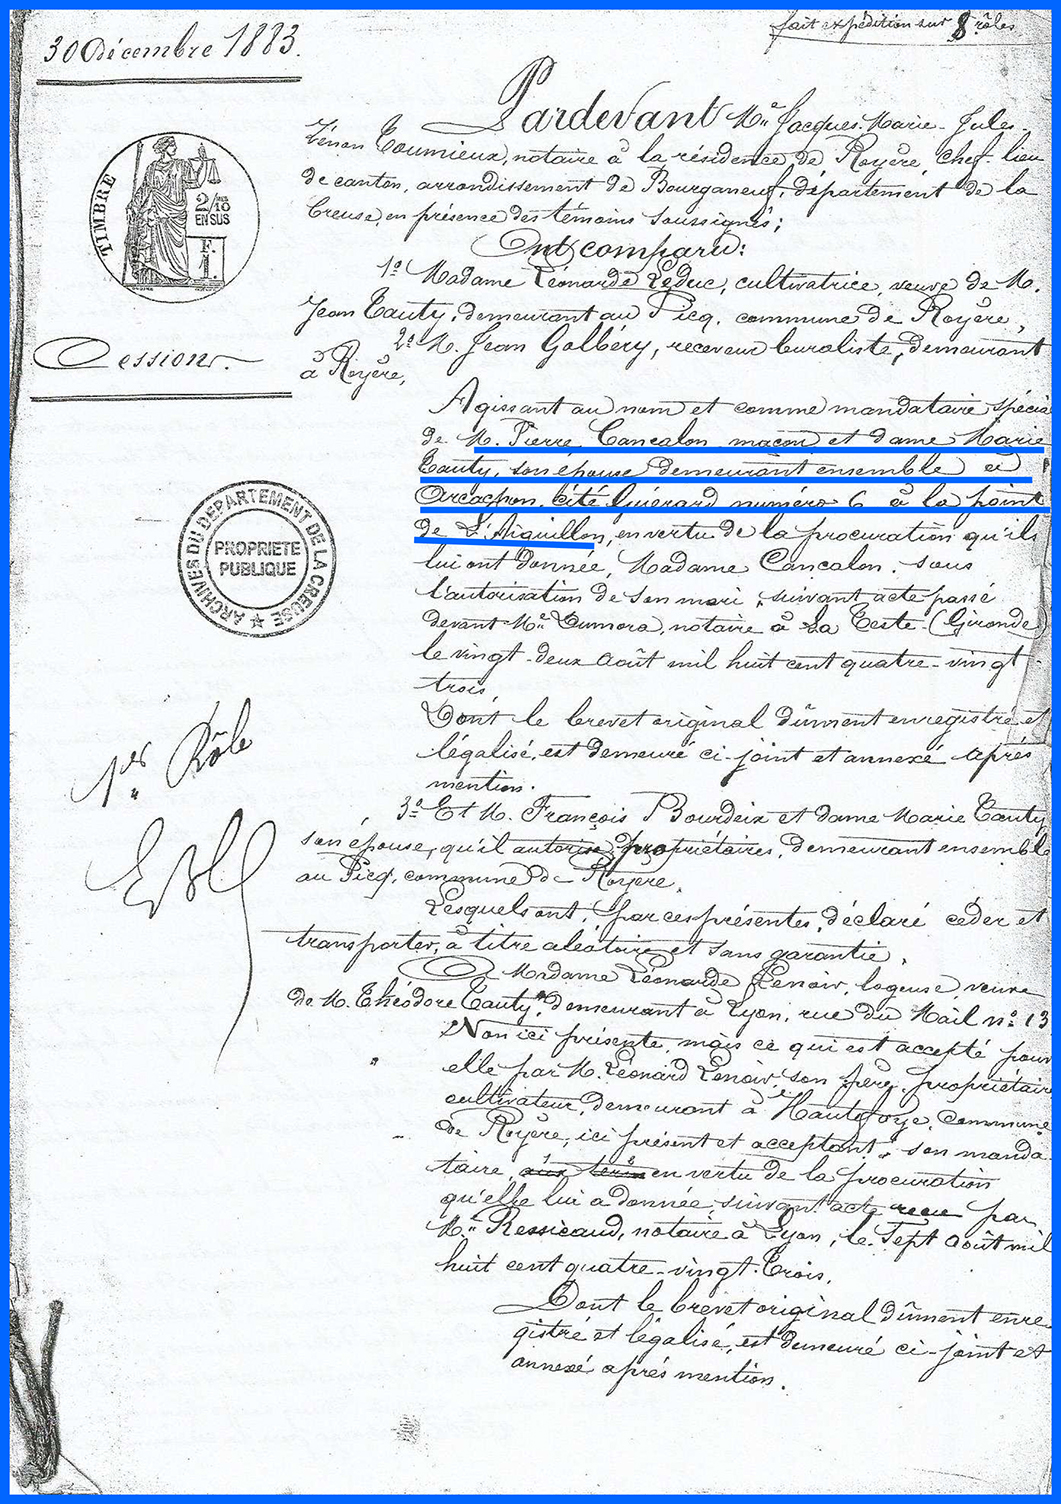 fait expédition sur 8 rôles
30 Décembre 1883.
TIMBRE
2/10
EN SUS
F.
1.
Cession.
ARCHIVES DU DÉPARTEMENT DE LA CREUSE
PROPRIETE
PUBLIQUE
1er Rôle
Pardevant Me Jacques-Marie-Jules-
Zénon Toumieux, notaire à la résidence de Royère, chef-lieu
de canton, arrondissement de Bourganeuf, département de la
Creuse, en présence des témoins soussignés;
Ont comparu:
1º Madame Léonarde Leduc, cultivatrice, veuve de M.
Jean Tauty, demeurant au Picq, commune de Royère,
2º M. Jean Galbéry, receveur buraliste, demeurant
à Royère,
Agissant au nom et comme mandataire spécia
de M. Pierre Cancalon maçon et dame Marie
Tauty, son épouse demeurant ensemble à
Arcachon, cité Guérard numéro 6 à la point
de L'Aiguillon, en vertu de la procuration qu'ils
lui ont donnée, Madame Cancalon, sous
l'autorisation de son mari, suivant acte passé
devant Me Dumora, notaire à La Teste (Gironde)
le vingt-deux août mil huit cent quatre-vingt
trois
Dont le brevet original dûment enregistré et
légalisé, est demeuré ci-joint et annexé après
mention.
3º Et M. François Bourdeix et dame Marie Tauty
son épouse, qu'il autorise, propriétaires, demeurant ensemble
au Picq, commune de Royère.
Lesquels ont, par ces présentes, déclaré céder et
transporter, à titre aléatoire et sans garantie,
A Madame Léonarde Lenoir, logeuse, veuve
de M. Théodore Tauty, demeurant à Lyon, rue du Mail nº 13
Non ici présente, mais ce qui est accepté pour
elle par M. Léonard Lenoir, son père, propriétaire
cultivateur, demeurant à Hautefoye, commune
de Royère, ici présent et acceptant, son manda-
taire, en vertu de la procuration
qu'elle lui a donnée, suivant acte reçu par
Me Ressicaud, notaire à Lyon, le sept août mil
huit cent quatre-vingt-trois.
Dont le brevet original dûment enre
gistré et légalisé, est demeuré ci-joint et
annexé après mention.